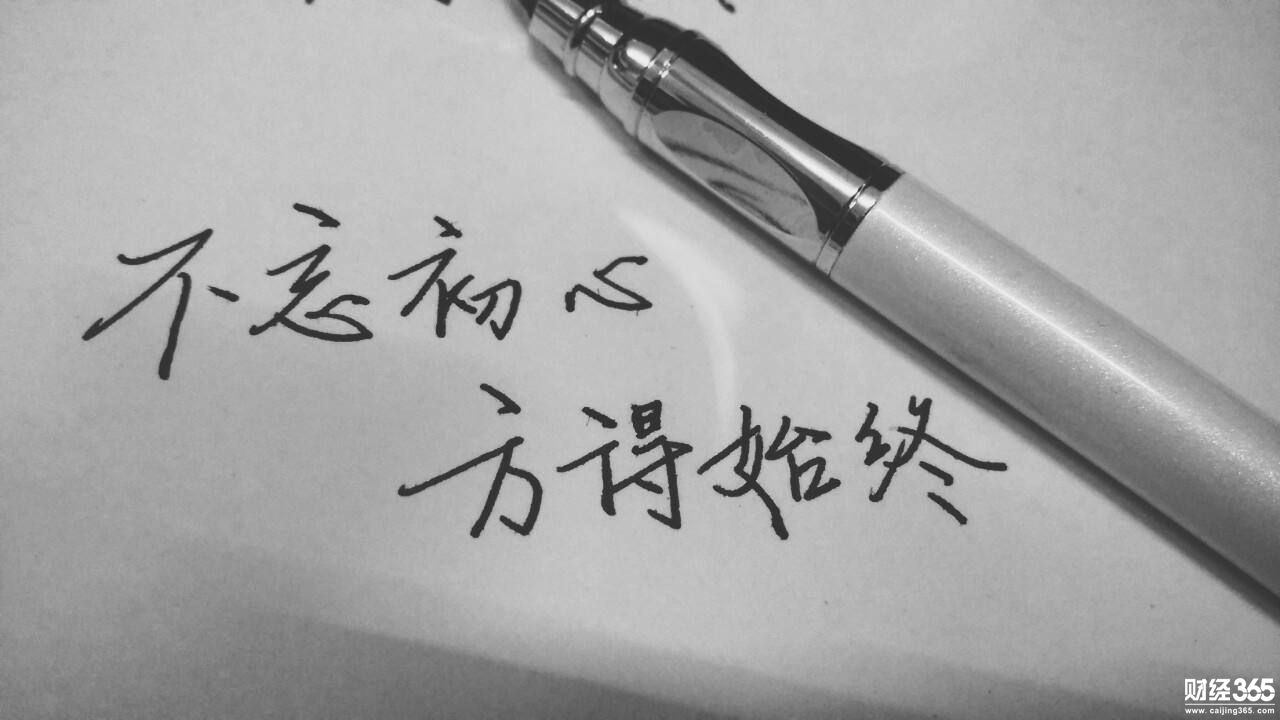 不忘初心
方得始终
财经365
www.caijing365.com